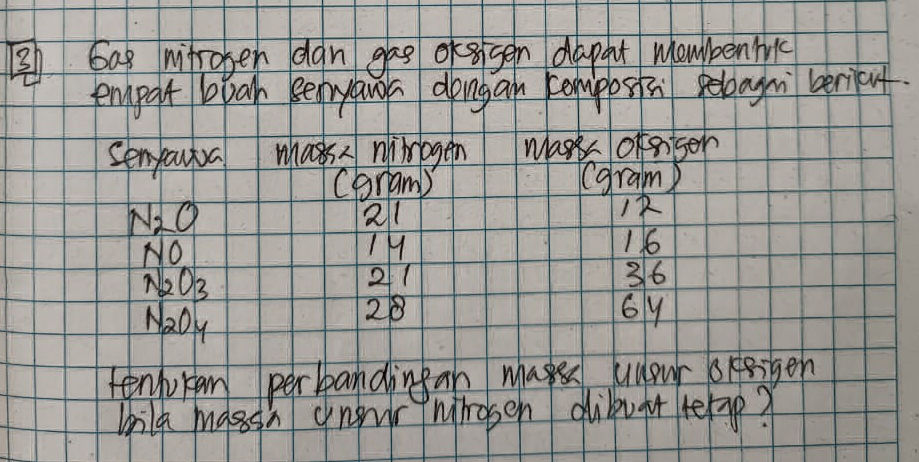 3) Gas nitrogen dan gas oksigen dapat membentuk
empat buah senyawa dengan komposisi sebagai berikut.
Senyawa massa nitrogen massa oksigen
(gram) (gram)
N2O 21 12
NO 14 16
N2O3 21 36
N2O4 28 64
tentukan perbandingan massa unsur oksigen
bila massa unsur nitrogen dibuat tetap?